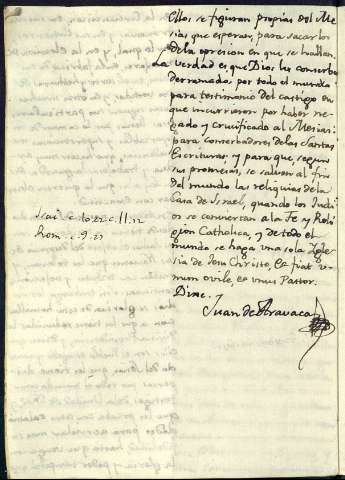 Ellos se figuran propias del Me-
sias, que esperan, para sacarlos
de la opresion en que se hallan.
La verdad es que Dios los conserba
derramados por todo el mundo
para testimonio del castigo en
que incurrieron por haber ne-
gado y crucificado al Mesias:
para conserbadores de las Santas
Escrituras: y para que, segun
sus promesas, se salven al fin
del mundo las reliquias de la
Casa de Israel, quando los Judi-
os se conviertan a la Fe y Reli-
gion Catholica, y de todo el
mundo se haga una sola Igle-
sia de Jesu Christo, et fiat u-
num ovile, et unus Pastor.
Dixe.
Juan de Aravaca
Isai. c. 10. 22. c. 11. 12
Rom. c. 9. 27